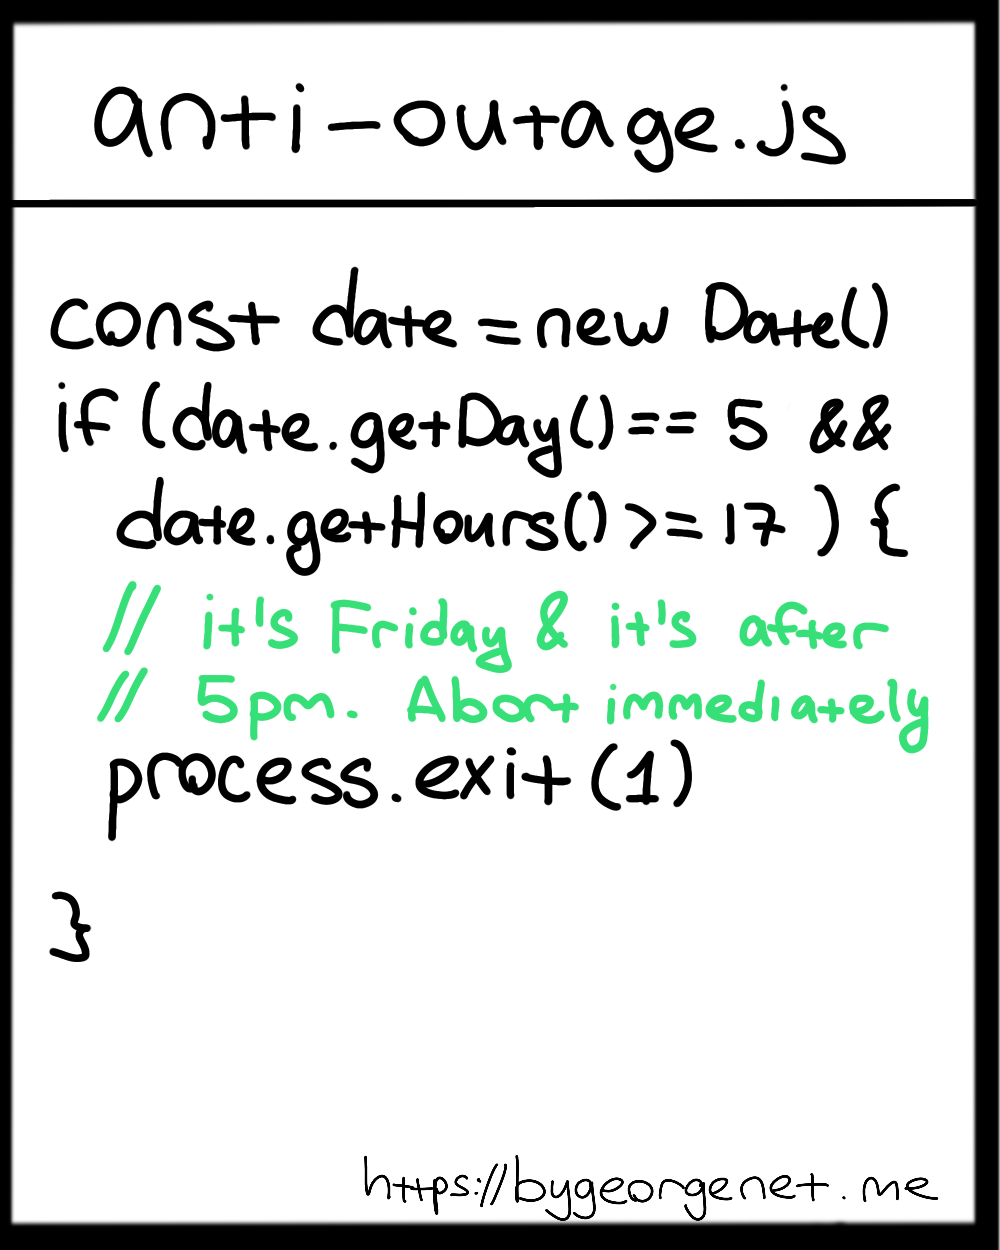 anti-outage.js
const date = new Date()
if (date.getDay() == 5 &&
date.getHours() >= 17 ) {
// it's Friday & it's after
// 5pm. Abort immediately
process.exit (1)
}
https://bygeorgenet.me